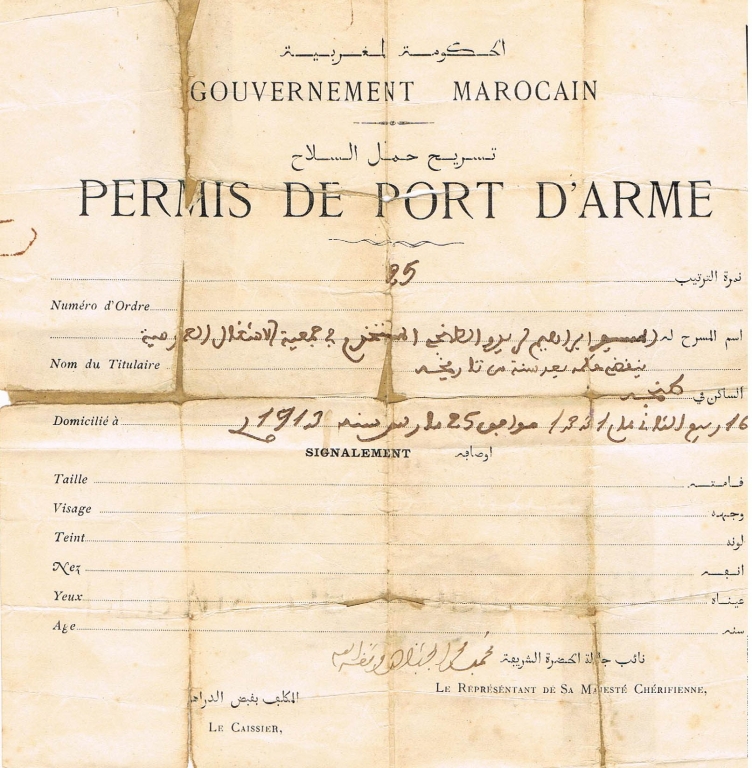 الحكومة المغربية
GOUVERNEMENT MAROCAIN
تسريح حمل السلاح
PERMIS DE PORT D'ARME
ندرة الترتيب 25
Numéro d'Ordre
اسم المسرح له ابراهيم الطنجي المستخدم في جمعية الاشغال العمومية
Nom du Titulaire ينقضي حكمه بعد سنة من تاريخه
الساكن في طنجة
Domicilié à 16 ربيع الثاني عام 1331 موافق 25 مارس سنه 1913
SIGNALEMENT اوصافه
Taille قامته
Visage وجهه
Teint لونه
Nez انفه
Yeux عيناه
Age سنه
نائب جلالة الحضرة الشريفة
LE REPRÉSENTANT DE SA MAJESTÉ CHÉRIFIENNE,
المكلف بقبض الدراهم
LE CAISSIER,